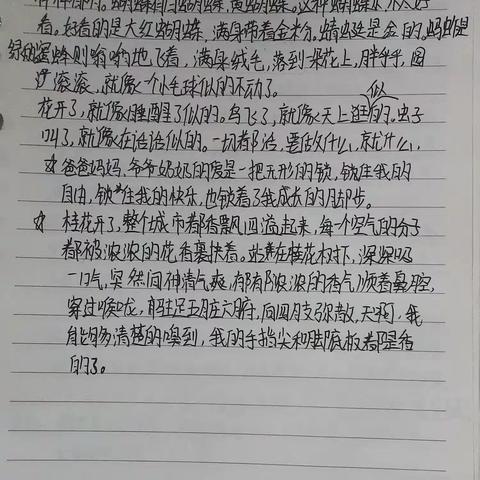 蝴蝶有白蝴蝶,黄蝴蝶。这种蝴蝶小,不好
看。好看的是大红蝴蝶,满身带着金粉。蜻蜓是金的,蚂蚱是
绿的蜜蜂则嗡嗡地飞着,满身绒毛,落到一朵花上,胖乎乎,圆
滚滚,就像一个小毛球似的不动了。
花开了,就像睡醒了似的。鸟飞了,就像天上逛似的。虫子
叫了,就像在说话似的。一切都活,要做什么,就什么,
☆爸爸妈妈,爷爷奶奶的爱是一把无形的锁,锁住我的
自由,锁住我的快乐,也锁着了我成长的脚步。
☆桂花开了,整个城市都香飘四溢起来,每一个空气的分子
都被浓浓的花香裹挟着。站在桂花树下,深深吸
一口气,突然间神清气爽,有那浓浓的香气顺着鼻腔,
穿过喉咙,驻足五脏六腑,向四肢弥散,天啊,我
能够清楚的嗅到,我的手指尖和脚底板都是香
的了。